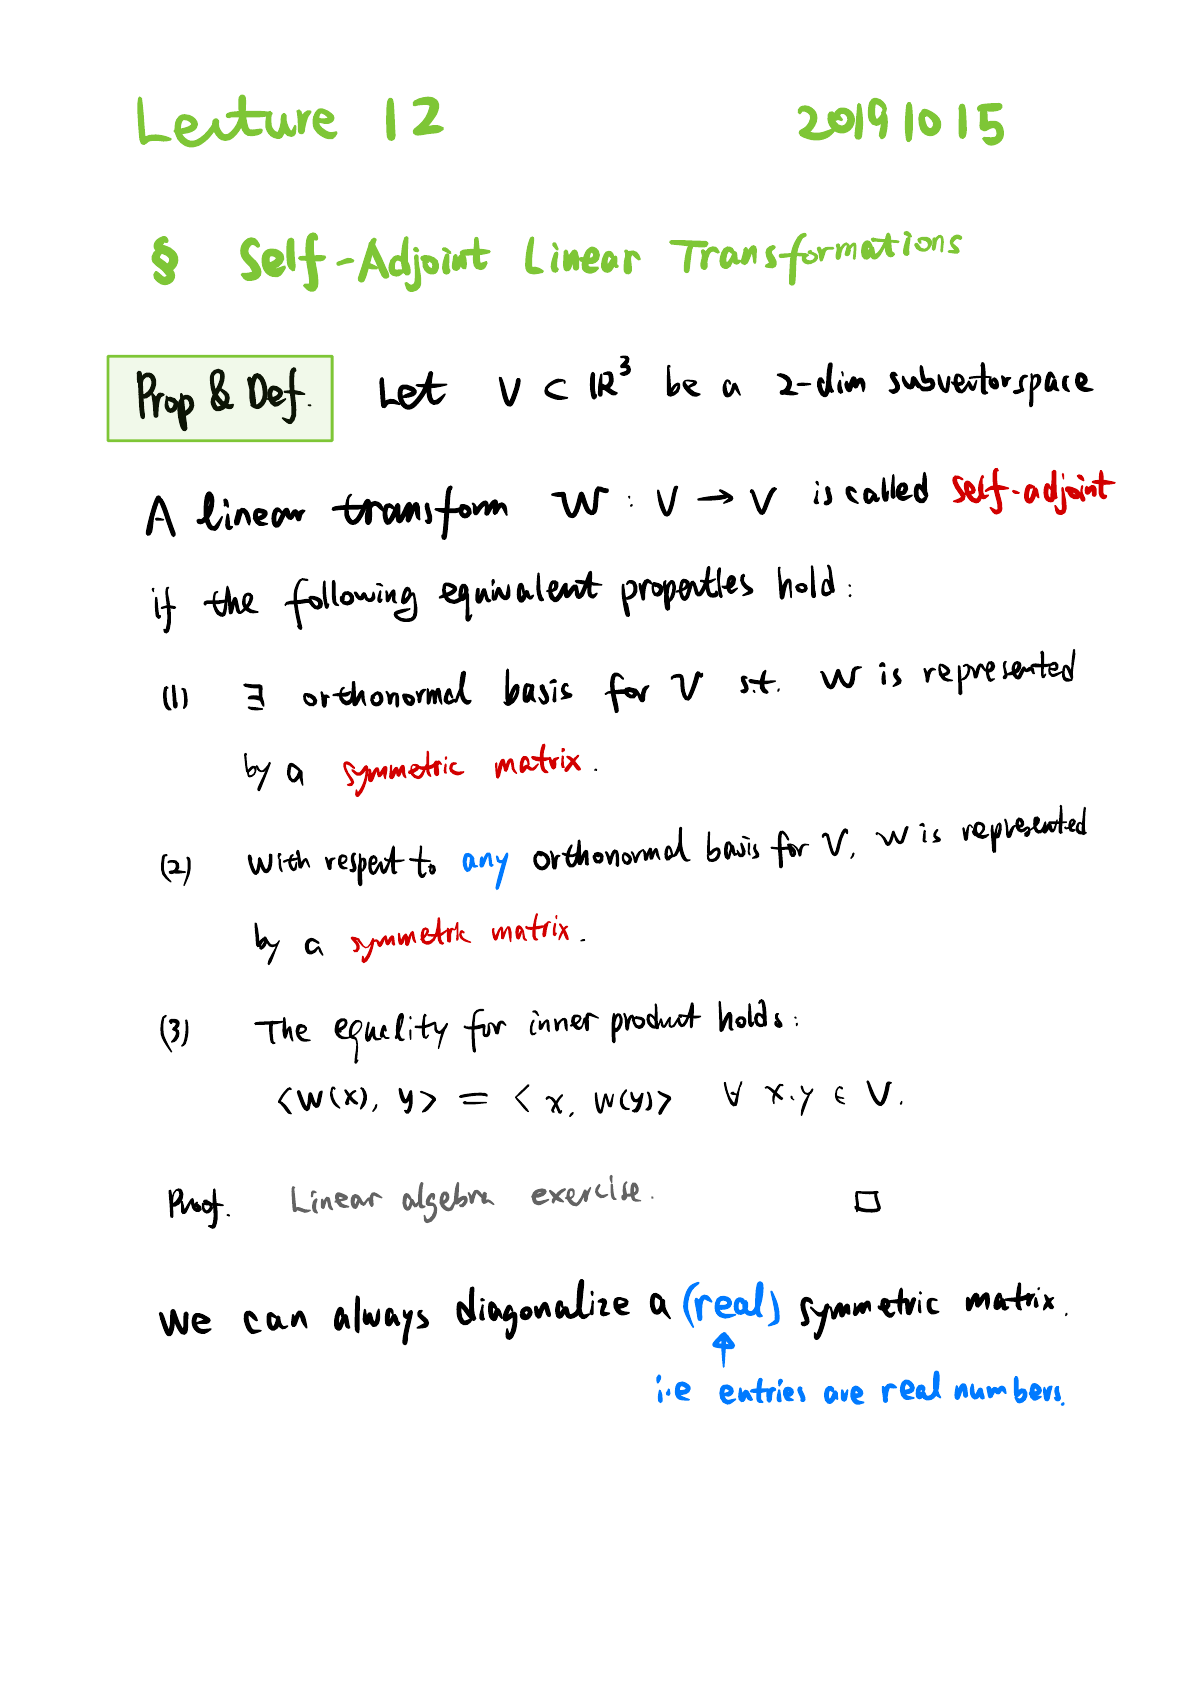 Lecture 12 20191015
§ Self-Adjoint Linear Transformations
Prop & Def. Let V ⊂ ℝ³ be a 2-dim subvectorspace
A linear transform W : V → V is called self-adjoint
if the following equivalent properties hold:
(1) ∃ orthonormal basis for V s.t. W is represented
by a symmetric matrix.
(2) With respect to any orthonormal basis for V, W is represented
by a symmetric matrix.
(3) The equality for inner product holds:
⟨W(x), y⟩ = ⟨x, W(y)⟩ ∀ x, y ∈ V.
Proof. Linear algebra exercise. □
We can always diagonalize a (real) symmetric matrix.
↑
i.e entries are real numbers.